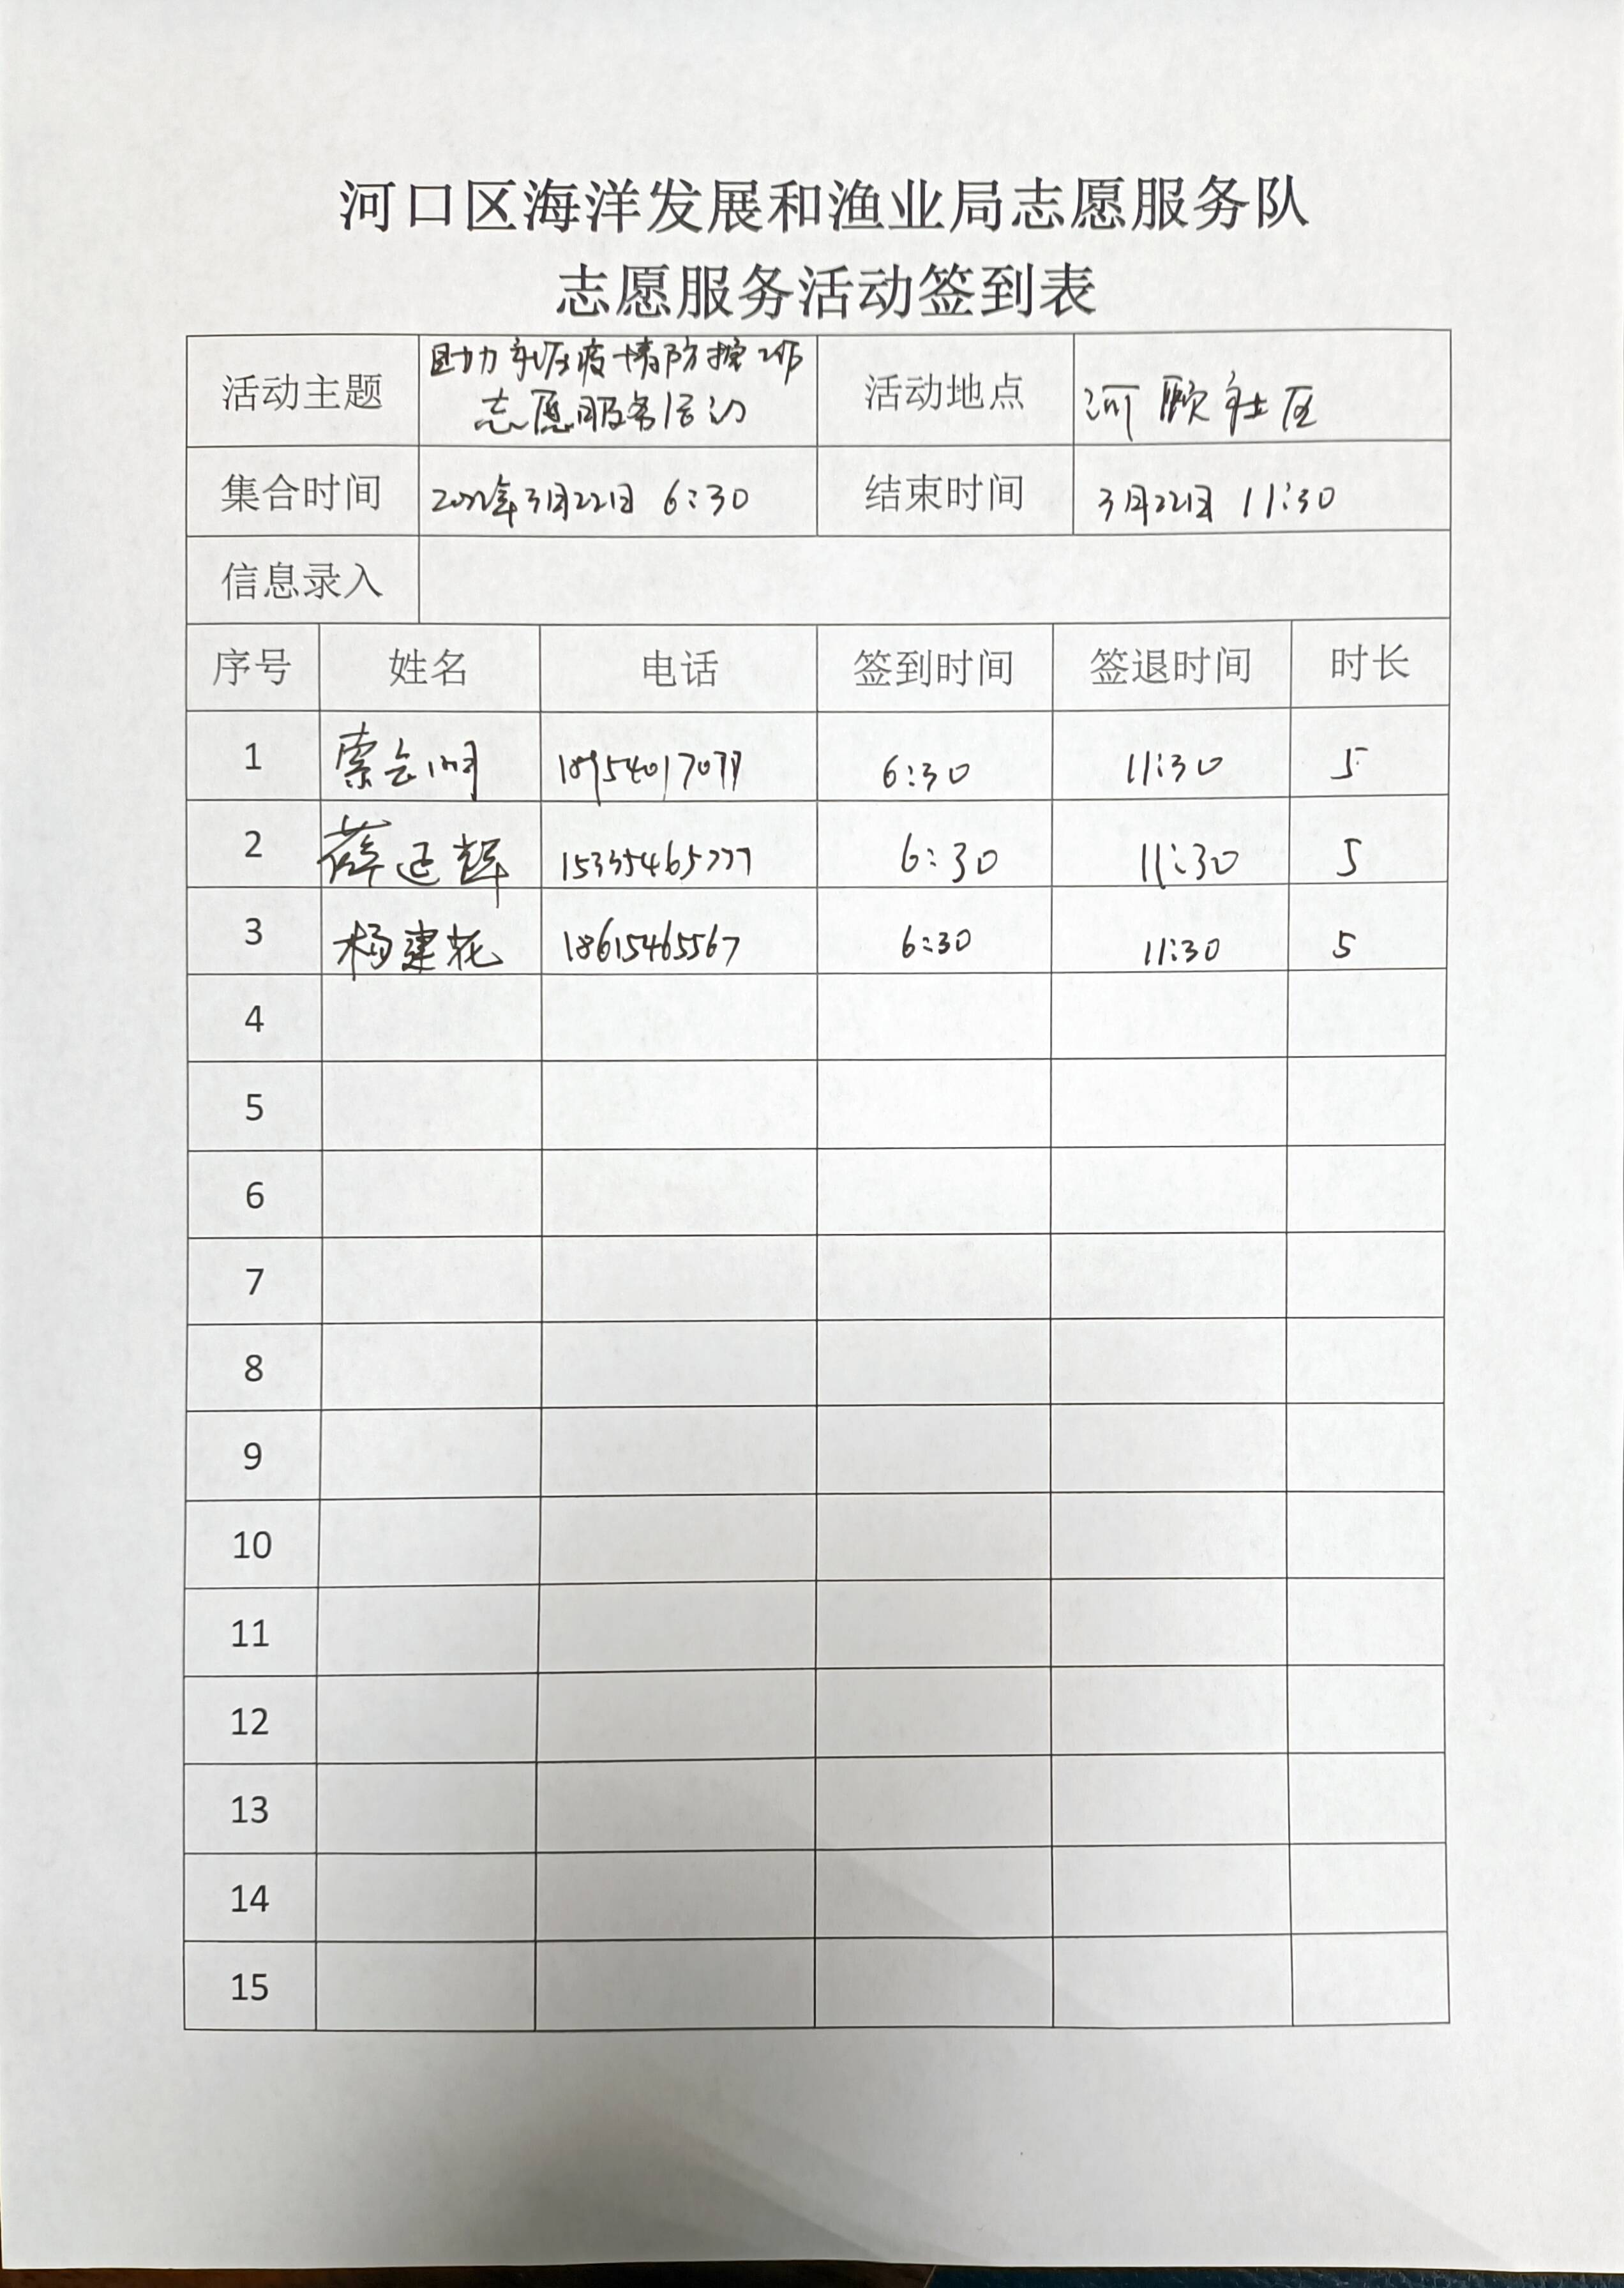 河口区海洋发展和渔业局志愿服务队
志愿服务活动签到表
活动主题 助力社区疫情防控工作 活动地点 河颐社区
志愿服务活动
集合时间 2022年3月22日 6:30 结束时间 3月22日 11:30
信息录入
序号 姓名 电话 签到时间 签退时间 时长
1 索会明 6:30 11:30 5
2 薛廷辉 6:30 11:30 5
3 杨建花 18615465567 6:30 11:30 5
4
5
6
7
8
9
10
11
12
13
14
15